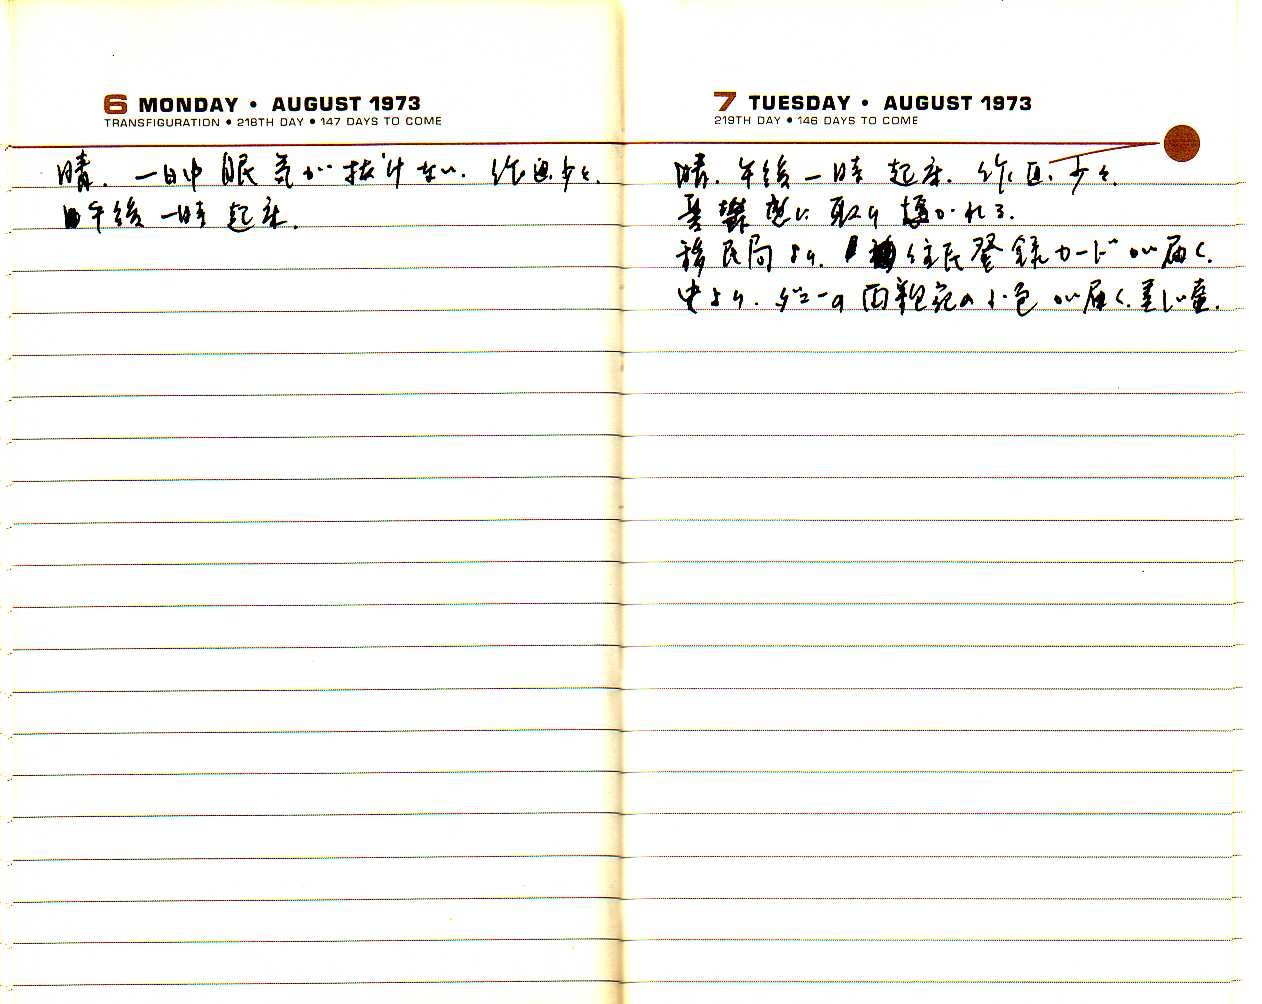 6 MONDAY • AUGUST 1973
TRANSFIGURATION • 218TH DAY • 147 DAYS TO COME
晴. 一日中 眠気が抜けない. 作画少々.
午後一時起床.
7 TUESDAY • AUGUST 1973
219TH DAY • 146 DAYS TO COME
晴. 午後一時起床. 作画. 少々.
憂鬱感に取り憑かれる.
移民局より. 住民登録カードが届く.
より. の両親宛の小包が届く.